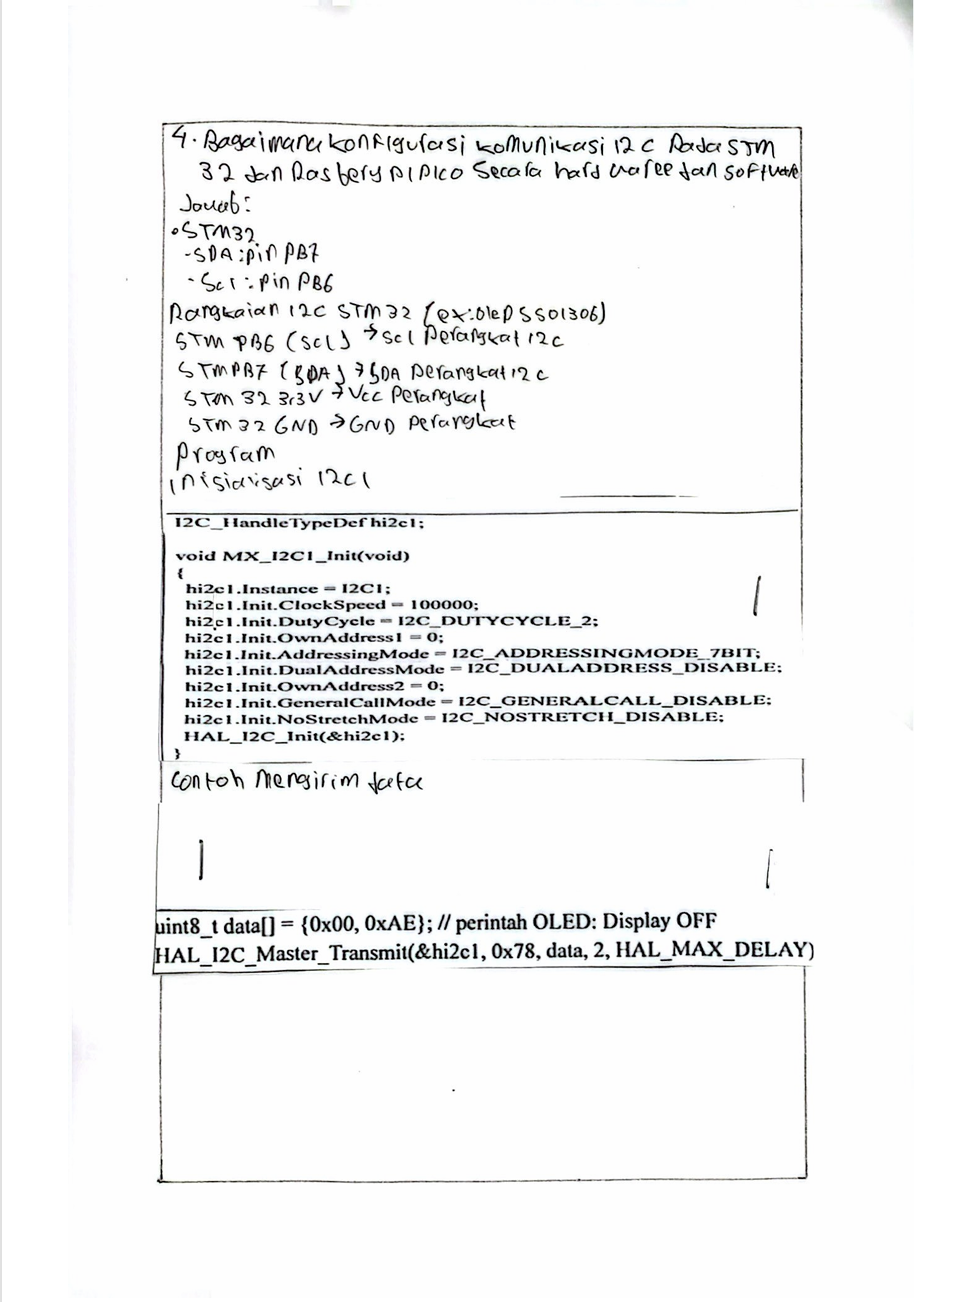 4. Bagaimana konfigurasi komunikasi I2C Pada STM
32 dan Rasbery PI PICO Secara hard waree dan software
Jawab:
• STM32
- SDA : pin PB7
- Scl : pin PB6
Rangkaian I2C STM 32 (ex: oleD SSD1306)
STM PB6 (Scl) → Scl Perangkat I2C
STM PB7 (SDA) → SDA Perangkat I2C
STM 32 3,3V → Vcc Perangkat
STM 32 GND → GND Perangkat
Program
Inisialisasi I2C1
I2C_HandleTypeDef hi2c1;
void MX_I2C1_Init(void)
{
hi2c1.Instance = I2C1;
hi2c1.Init.ClockSpeed = 100000;
hi2c1.Init.DutyCycle = I2C_DUTYCYCLE_2;
hi2c1.Init.OwnAddress1 = 0;
hi2c1.Init.AddressingMode = I2C_ADDRESSINGMODE_7BIT;
hi2c1.Init.DualAddressMode = I2C_DUALADDRESS_DISABLE;
hi2c1.Init.OwnAddress2 = 0;
hi2c1.Init.GeneralCallMode = I2C_GENERALCALL_DISABLE;
hi2c1.Init.NoStretchMode = I2C_NOSTRETCH_DISABLE;
HAL_I2C_Init(&hi2c1);
}
Contoh Mengirim data
uint8_t data[] = {0x00, 0xAE}; // perintah OLED: Display OFF
HAL_I2C_Master_Transmit(&hi2c1, 0x78, data, 2, HAL_MAX_DELAY)